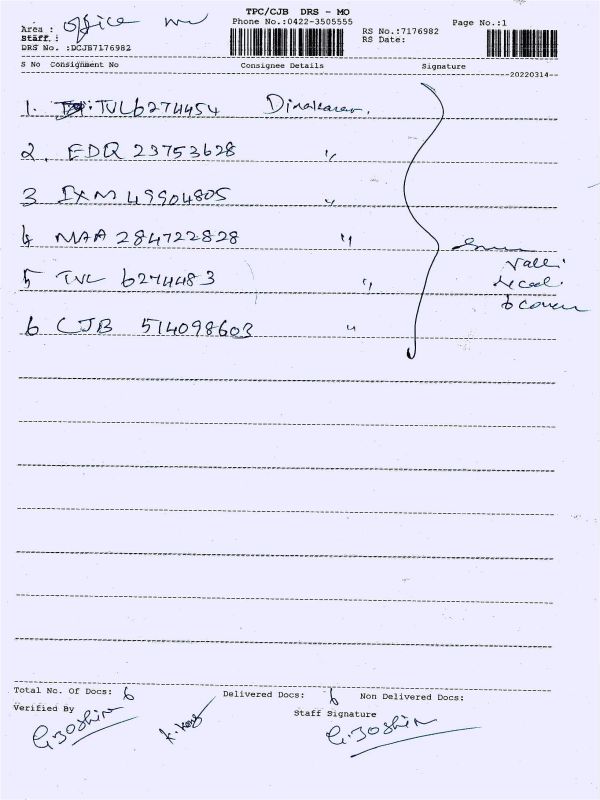 TPC/CJB DRS - MO
Area : office
Phone No.:0422-3505555
Page No.:1
Staff :
RS No.:7176982
DRS No. :DCJB7176982
RS Date:
S No Consignment No Consignee Details Signature
20220314
1. TVL6274454 Dinakaran.
2. EDQ 23753628 "
3 IXM 49904805 "
4 MAA 284722828 "
5 TVL 6274483 "
6 CJB 514098603 "
Valli
6 covers
Total No. Of Docs: 6 Delivered Docs: 6 Non Delivered Docs:
Verified By
Staff Signature
G.Joshin
G.Joshin